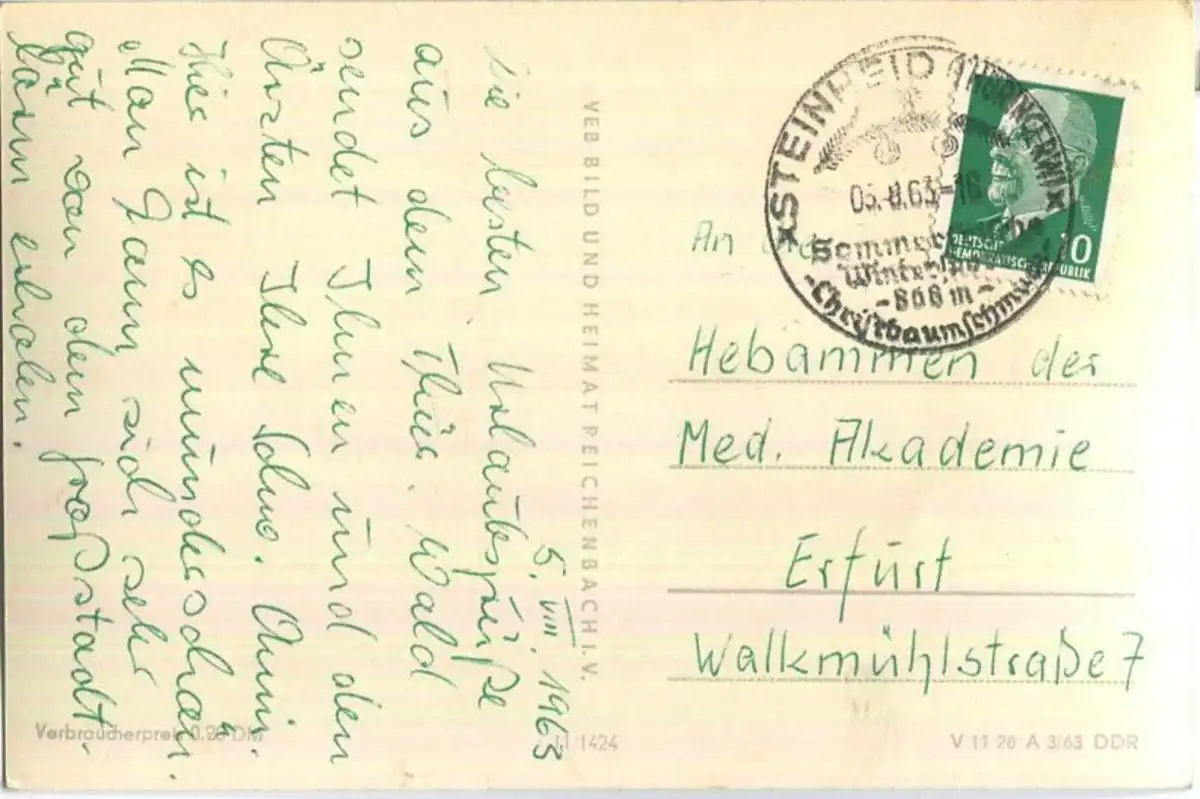 5. VIII. 1963
Die besten Urlaubsgrüße
aus dem Thür. Wald
sendet Ihnen und den
Ärzten Ihre Schw. Anni.
Hier ist es wunderschön.
Man kann sich sehr
gut von dem Großstadt-
lärm erholen.
VEB BILD UND HEIMAT REICHENBACH I. V.
STEINHEID (THÜR. WALD)
05.-8.63.-16
Sommerfrische
Winter
- 868 m -
- Christbaumschmuck
DEUTSCHE
DEMOKRATISCHE REPUBLIK
10
An die
Hebammen der
Med. Akademie
Erfurt
Walkmühlstraße 7
Verbraucherpreis 0.20 DM
11/1424
V 11 28 A 3/63 DDR